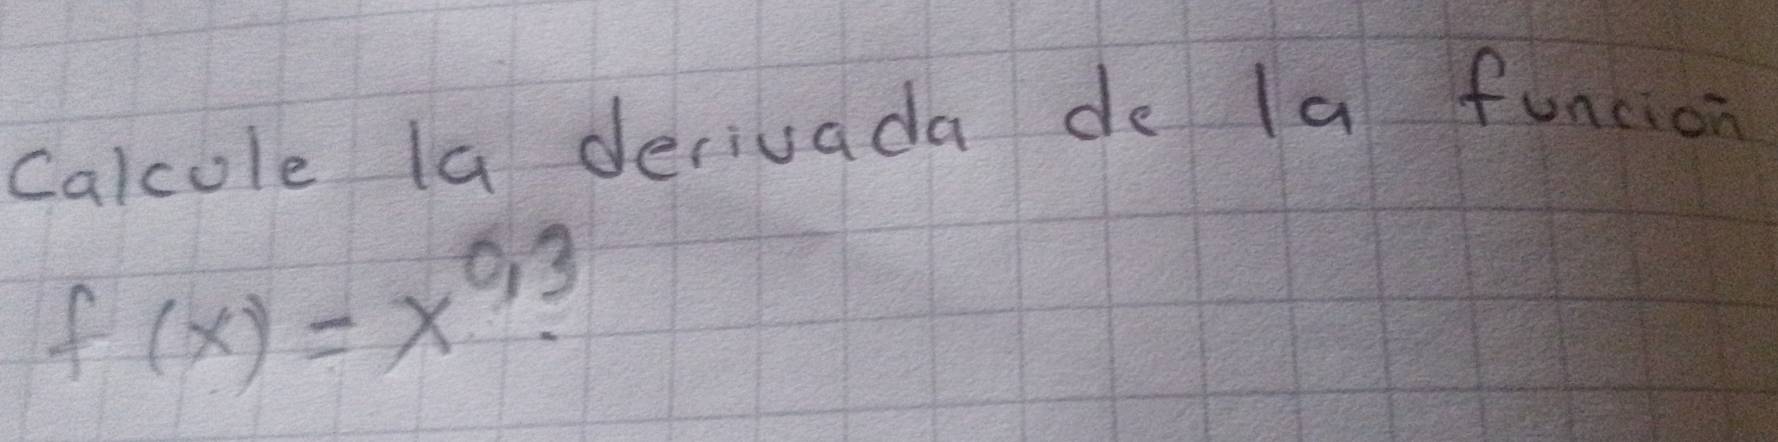 Calcule la derivada de la función
f(x) = x^0,3.